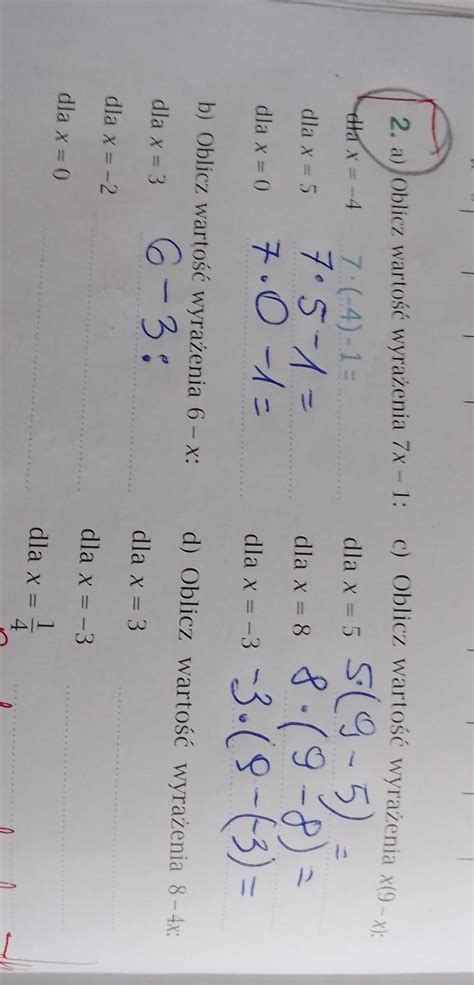 2. a) Oblicz wartość wyrażenia 7x – 1:
dla x = –4 7·(-4)-1=
dla x = 5 7·5-1=
dla x = 0 7·0-1=
b) Oblicz wartość wyrażenia 6 – x:
dla x = 3 6-3:
dla x = –2
dla x = 0
c) Oblicz wartość wyrażenia x(9 – x):
dla x = 5 5·(9-5)=
dla x = 8 8·(9-8)=
dla x = –3 -3·(9-(-3)=
d) Oblicz wartość wyrażenia 8 – 4x:
dla x = 3
dla x = –3
dla x = 1/4